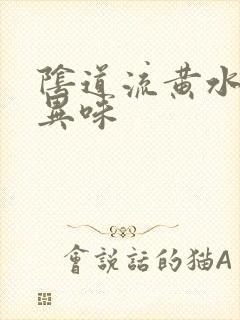 陰道流黃水
異味
會說話的猫A